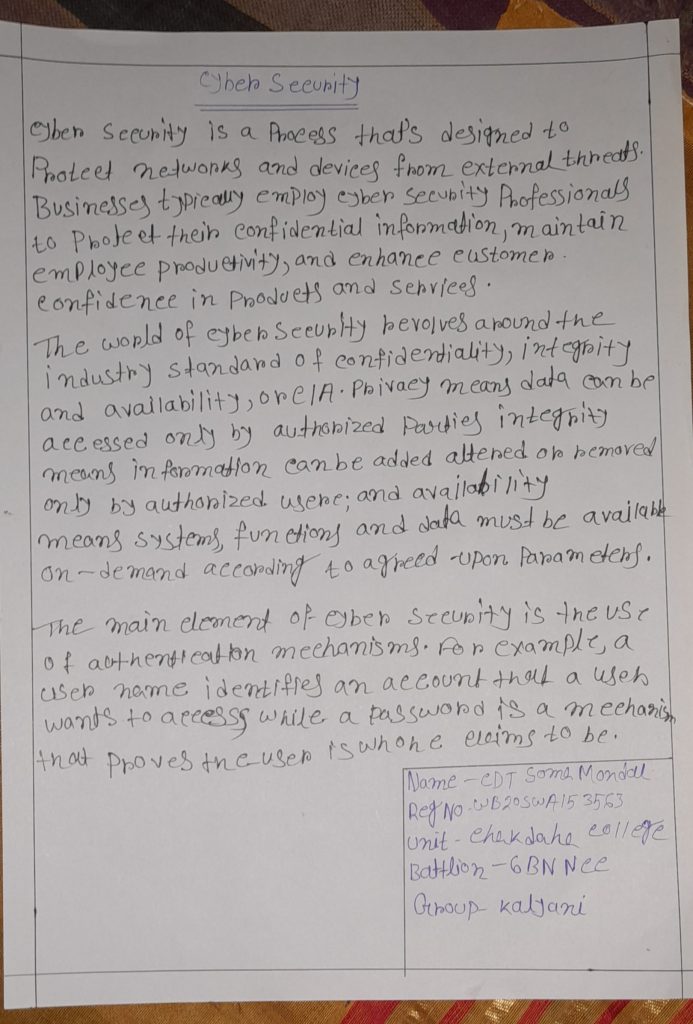 Cyber Security
Cyber Security is a Process that's designed to
Protect networks and devices from external threats.
Businesses typically employ cyber security Professionals
to Protect their confidential information, maintain
employee productivity, and enhance customer.
confidence in Products and services.
The world of cyber Security revolves around the
industry standard of confidentiality, integrity
and availability, or CIA. Privacy means data can be
accessed only by authorized Parties integrity
means information can be added altered or removed
only by authorized users; and availability
means systems, functions and data must be available
on-demand according to agreed-upon Parameters.
The main element of cyber Security is the use
of authentication mechanisms. For example, a
user name identifies an account that a user
wants to accesss while a password is a mechanism
that proves the user is who he claims to be.
Name - CDT Soma Mondal
Reg No - WB20SWA153563
Unit - Chakdaha College
Battlion - 6BN NCC
Group Kalyani